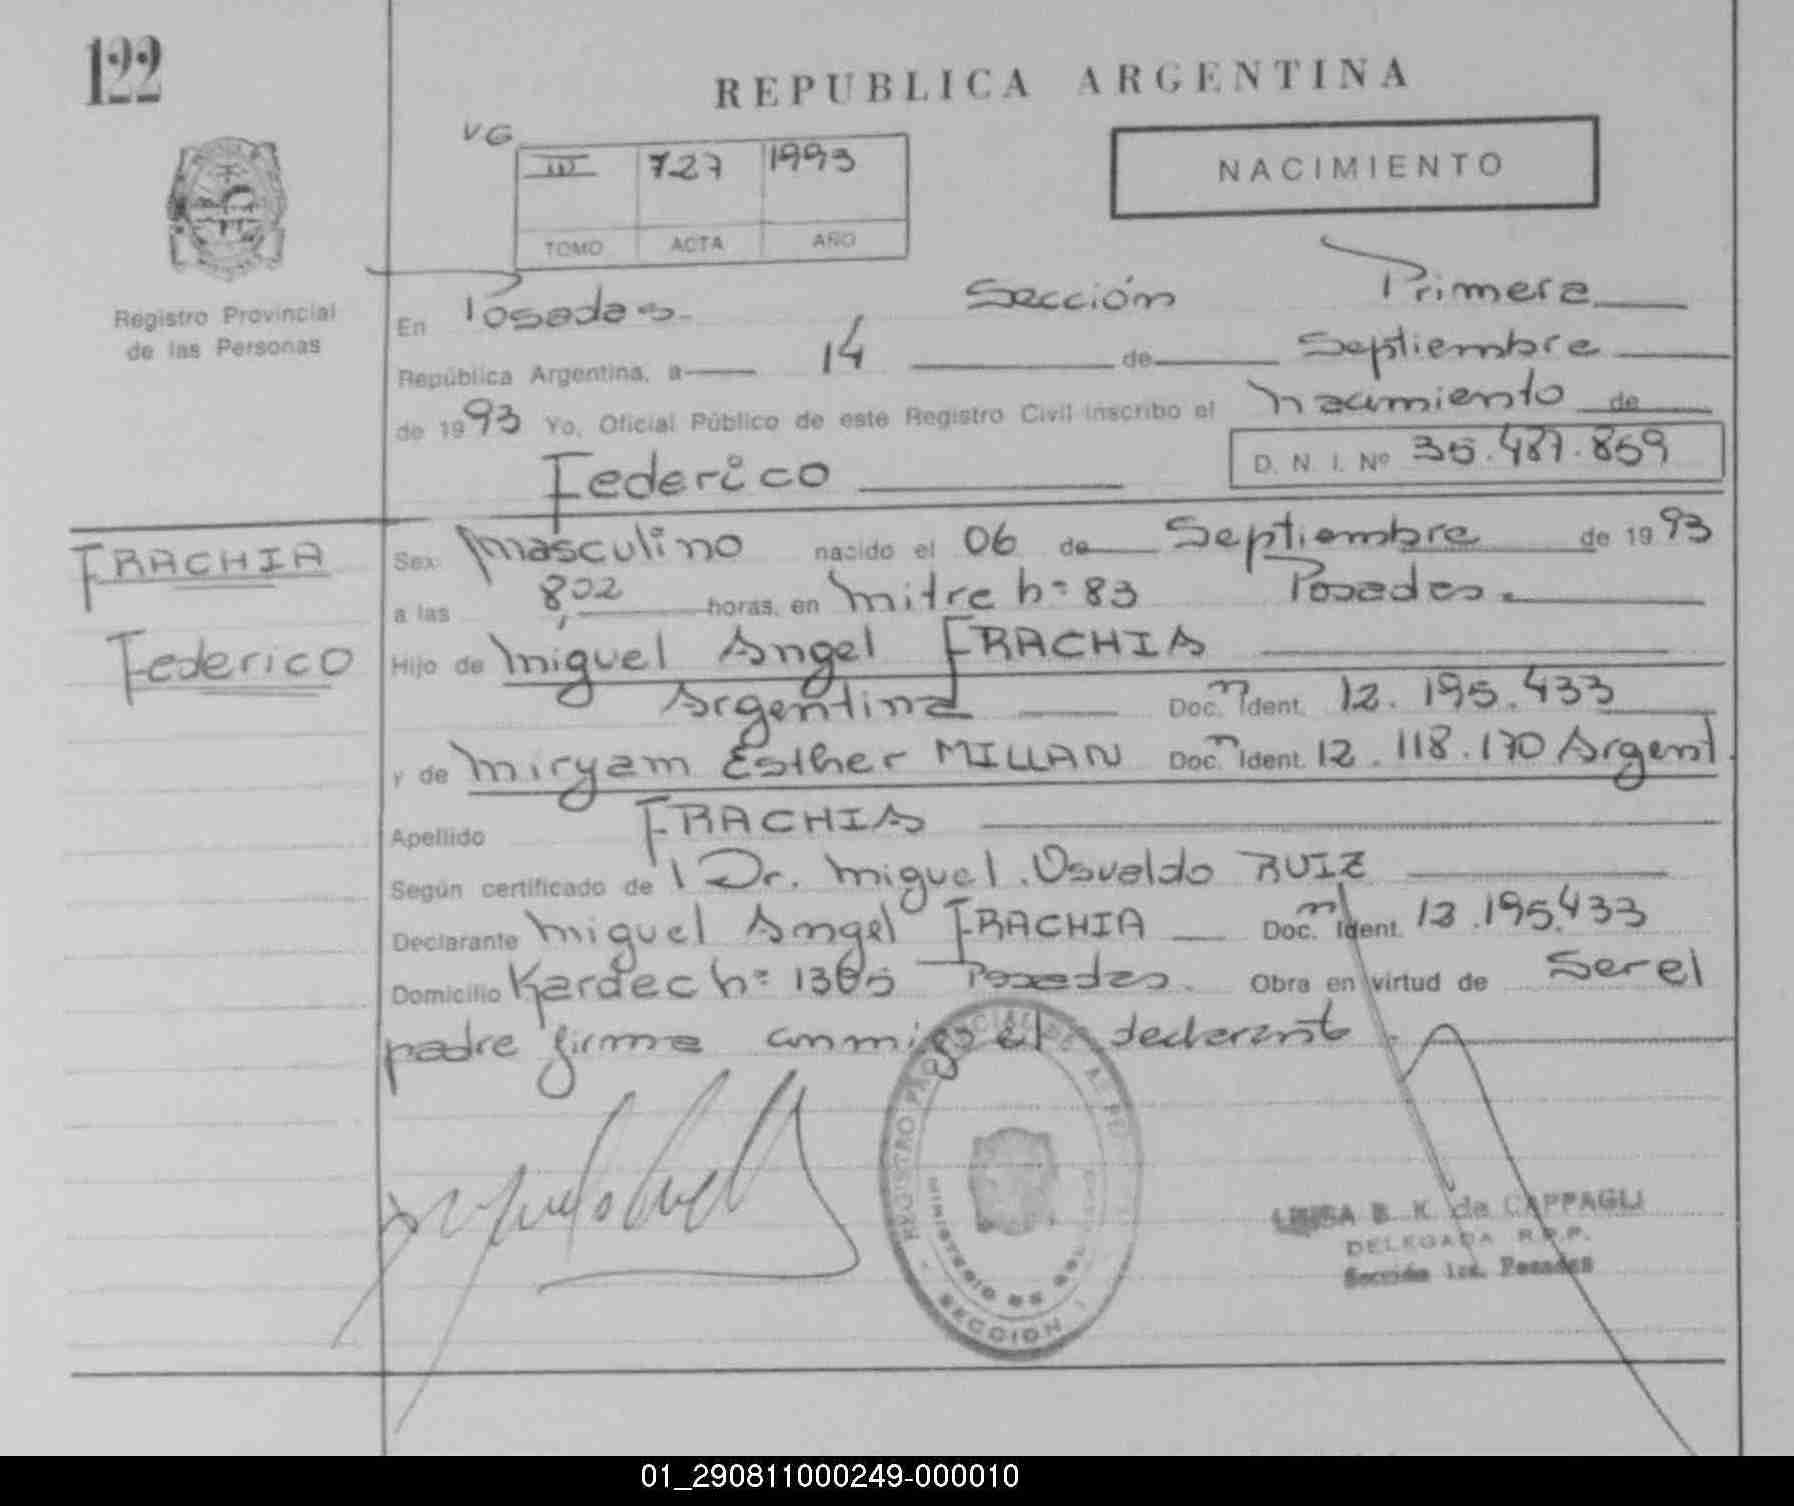 122
REPUBLICA ARGENTINA
VG
III 727 1993
TOMO ACTA AÑO
NACIMIENTO
Registro Provincial
de las Personas
En Posadas. Sección Primera
República Argentina, a 14 de Septiembre
de 1993 Yo, Oficial Público de este Registro Civil inscribo el nacimiento de
Federico D. N. I. Nº 35.487.859
FRACHIA
Federico
Sex. masculino nacido el 06 de Septiembre de 1993
a las 8,02 horas, en mitre nº 83 Posadas.
Hijo de miguel Angel FRACHIA
Argentina Doc. Ident. 12.195.433
y de miryam Esther MILLAN Doc. Ident. 12.118.170 Argent.
Apellido FRACHIA
Según certificado de Dr. miguel Osvaldo RUIZ
Declarante miguel Angel FRACHIA Doc. Ident. 12.195.433
Domicilio Kardec nº 1365 Posadas. Obra en virtud de Ser el
padre firma conmigo el declarante
REGISTRO PROVINCIAL DE LAS PER
MINISTERIO DE
SECCION 1
LUISA B. K. de CAPPAGLI
DELEGADA R.P.P.
Sección 1ra. Posadas
01_290811000249-000010